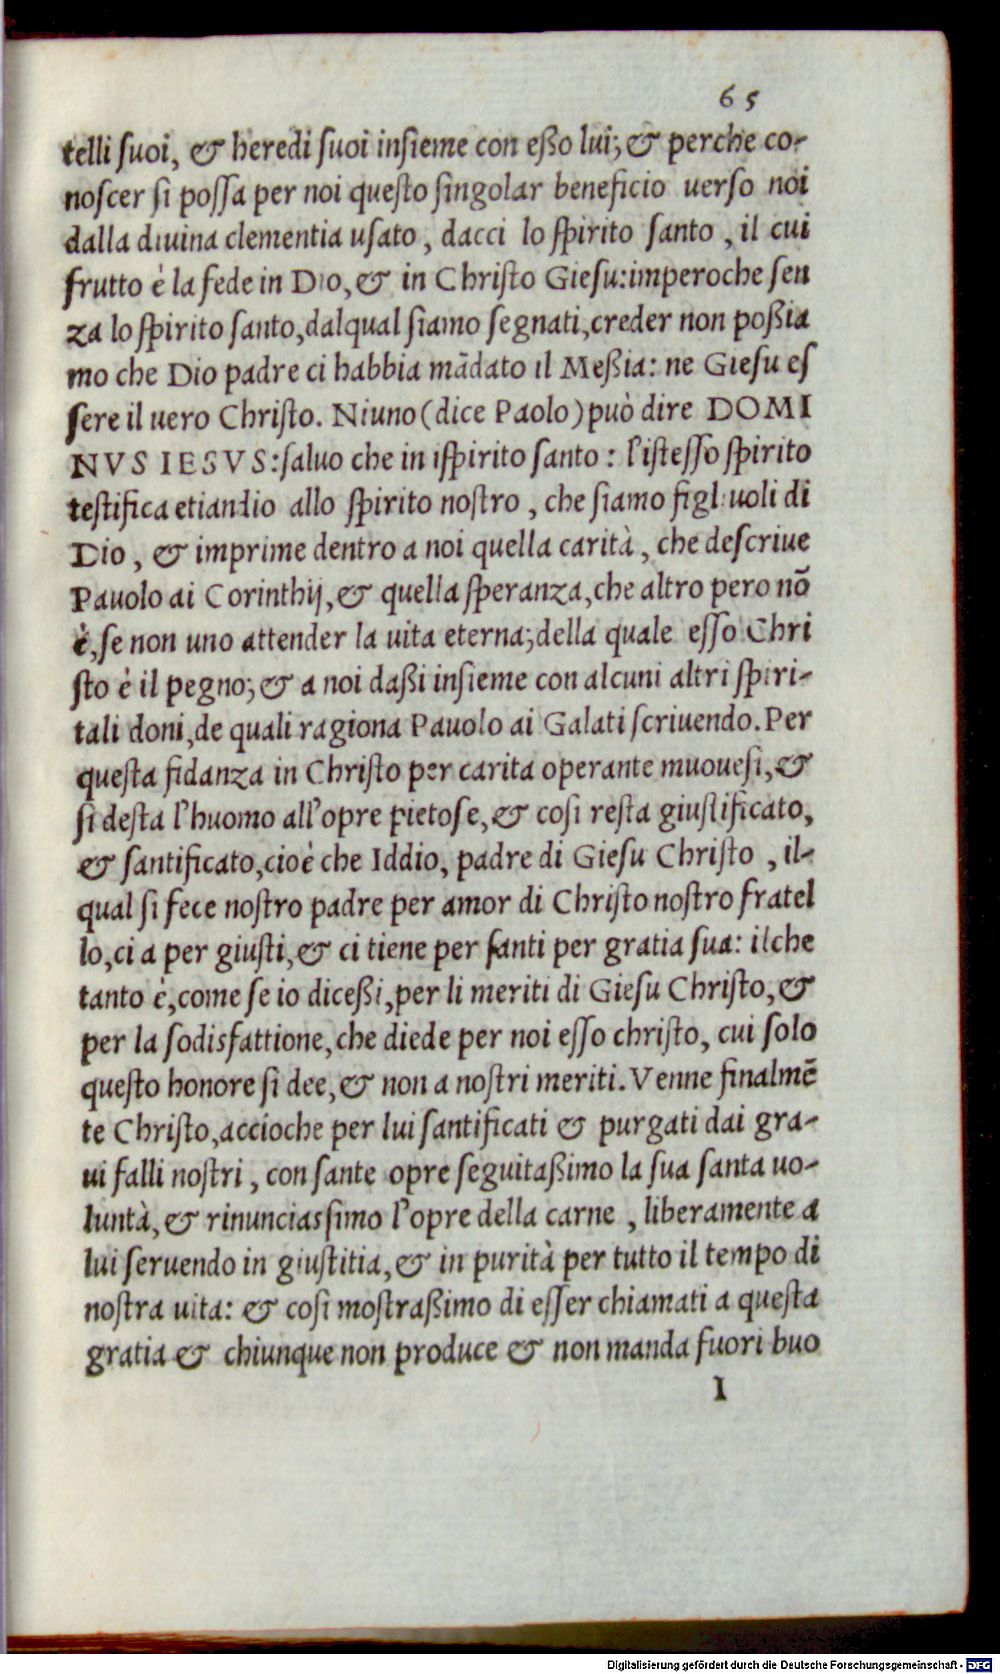 65
telli ſuoi, & heredi ſuoi inſieme con eßo lui; & perche co-
noſcer ſi poſſa per noi queſto ſingolar beneficio uerso noi
dalla diuina clementia uſato, dacci lo ſpirito ſanto, il cui
frutto è la fede in Dio, & in Chriſto Gieſu: imperoche ſen
za lo ſpirito ſanto, dalqual ſiamo ſegnati, creder non poßia
mo che Dio padre ci habbia mādato il Meßia: ne Gieſu eſ
ſere il uero Chriſto. Niuno (dice Paolo) può dire DOMI
NVS IESVS: ſaluo che in iſpirito ſanto: l'iſteſſo ſpirito
teſtifica etiandio allo ſpirito noſtro, che ſiamo figliuoli di
Dio, & imprime dentro a noi quella carità, che deſcriue
Pauolo ai Corinthij, & quella ſperanza, che altro pero nō
è, ſe non uno attender la uita eterna; della quale eſſo Chri
ſto è il pegno; & a noi daßi inſieme con alcuni altri ſpiri-
tali doni, de quali ragiona Pauolo ai Galati ſcriuendo. Per
queſta fidanza in Chriſto per carita operante muoueſi, &
ſi deſta l'huomo all'opre pietoſe, & coſi reſta giuſtificato,
& ſantificato, cioè che Iddio, padre di Gieſu Chriſto, il-
qual ſi fece noſtro padre per amor di Chriſto noſtro fratel
lo, ci a per giuſti, & ci tiene per ſanti per gratia ſua: ilche
tanto è, come ſe io diceßi, per li meriti di Gieſu Chriſto, &
per la ſodisfattione, che diede per noi eſſo chriſto, cui ſolo
queſto honore ſi dee, & non a noſtri meriti. Venne finalmē
te Chriſto, accioche per lui ſantificati & purgati dai gra-
ui falli noſtri, con ſante opre ſeguitaßimo la ſua ſanta uo-
luntà, & rinunciasſimo l'opre della carne, liberamente a
lui ſeruendo in giuſtitia, & in purità per tutto il tempo di
noſtra uita: & coſi moſtraßimo di eſſer chiamati a queſta
gratia & chiunque non produce & non manda fuori buo
I
Digitalisierung gefördert durch die Deutsche Forschungsgemeinschaft - DFG